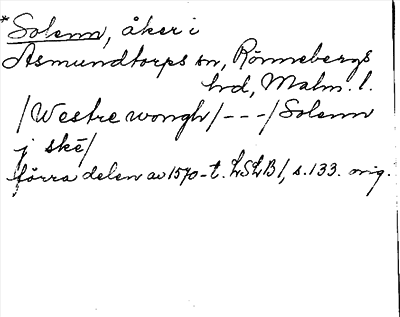 *Solenn, åker i
Asmundtorps sn, Rönnebergs
hd, Malm. l.
/Westre wongh/ - - - /Solenn
j skē/
förra delen av 1570-t. LSLB1, s. 133. orig.